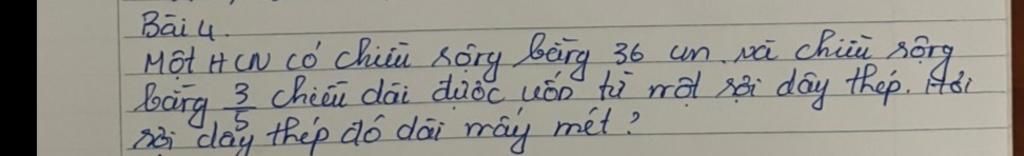 Bài 4.
Một HCN có chiều rộng bằng 36 cm. và chiều rộng
bằng 3/5 chiều dài được uốn từ một sợi dây thép. Hỏi
sợi dây thép đó dài mấy mét?